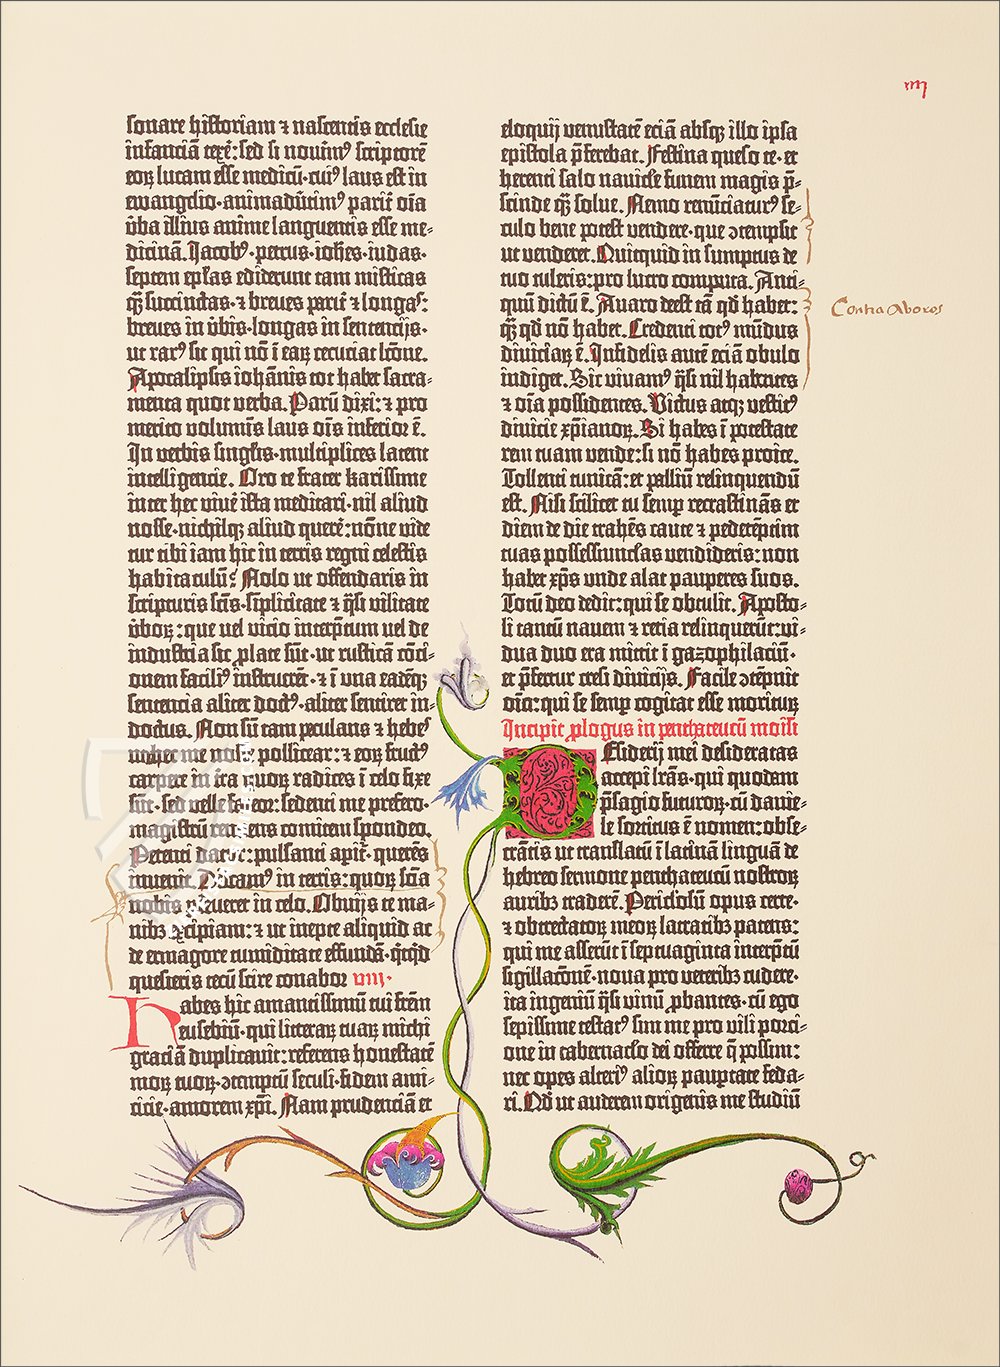 sonare historiam ⁊ nascentis ecclesie
infanciā texe͛: sed si novim⁹ scriptorē
eoꝝ lucam esse medicū · cui⁹ laus est in
ewangelio · animadūtim⁹ parit͛ oīa
v̄ba illius anime languentis esse me-
dicinā. Jacob⁹ · petrus · ioh̄es · iudas ·
septem ep̄las ediderunt tam misticas
q̄ȝ succinctas · ⁊ breues parit͛ ⁊ longas:
breues in v̄bis · longas in sentencijs ·
ut rar⁹ sit qui nō ī eaꝝ cecuciat lc̄one.
Apocalipsis iohānis tot habet sacra-
menta quot verba. Parū dixi: ⁊ pro
merito volumīs laus oīs inferior ē.
In verbis singl̄is · multiplices latent
intelligencie. Oro te frater karissime
inter hec viue͛ · ista meditari · nil aliud
nosse · nichilqȝ aliud quere͛: nōne vide
tur tibi iam hic in terris regni celestis
habitaculū? Nolo ut offendaris in
scripturis sc̄is · sīplicitate ⁊ q̄si vilitate
v̄boꝝ: que vel vicio interp̄tum vel de
industria sic ꝓlate sūt · ut rusticā cōci-
onem facili⁹ instruerēt · ⁊ ī vna eadēqȝ
sentencia aliter doct⁹ · aliter sentiret in-
doctus. Non sū tam petulans ⁊ hebes
ut hec me nosse pollicear: ⁊ eoꝝ fruct⁹
carpere in t̄ra quoꝝ radices ī celo fixe
sūt · sed velle fateor: sedenti me prefero ·
magistrū renuens comitem spondeo.
Petenti datur: pulsanti apit͛ · querēs
invenit. Discam⁹ in terris: quoꝝ sc̄ia
nobis perseueret in celo. Obuijs te ma-
nibȝ excipiam: ⁊ ut inepte aliquid ac
de ermagore tumiditate effundā · q̄cqd̄
quesieris tecū scire conabor viiij ·
Habes hic amantissimū tui frēm
eusebiū · qui literaꝝ tuaꝝ michi
graciā duplicauit: referens honestatē
moꝝ tuoꝝ · ↄtemptū seculi · fidem ami-
cicie · amorem xp̄i. Nam prudenciā et
viij
eloquij venustatē eciā absqȝ illo ipsa
epistola p̄ferebat. Festina queso te · et
herenti salo nauicl̄e funem magis p̄-
scinde q̄ȝ solue. Nemo renūciatur⁹ se-
culo bene potest vendere · que ↄtempsit
ut venderet. Quitquid in sumptus de
tuo tuleris: pro lucro computa. Anti-
quū dictū ē. Auaro deest tā qd̄ habet:
q̄ȝ qd̄ nō habet. Credenti tot⁹ mūdus
diuiciaꝝ ē. Infidelis autē eciā obulo
indiget. Sic viuam⁹ q̄si nil habentes
⁊ oīa possidentes. Victus atqȝ vestit⁹
diuicie xp̄ianoꝝ. Si habes ī potestate
rem tuam vende: si nō habes proice.
Tollenti tunicā: et palliū relinquendū
est. Nisi scilicet tu semꝑ recrastināns et
diem de die trahēs caute ⁊ pedetēptim
tuas possessiunclas vendideris: non
habet xp̄s vnde alat pauperes suos.
Totū deo dedit: qui se obtulit. Aposto-
li tantū nauem ⁊ retia relinquerūt: vi-
dua duo era mittit ī gazophilaciū ·
et p̄fertur cresi diuicijs. Facile ↄtēpnit
oīa: qui se semꝑ cogitat esse moriturꝝ
Incipit ꝓlogus in penthateucū moisi
Desiderij mei desideratas
accepi l̄ras · qui quodam
p̄sagio futuroꝝ · cū danie-
le sortitus ē nomen: obse-
crātis ut translatū ī latinā linguā de
hebreo sermone penthateucū nostroꝝ
auribȝ traderē. Periclōsū opus certe ·
⁊ obtrectatoꝝ meoꝝ latratibȝ patens:
qui me asserūt ī septuaginta interp̄tū
sigillacōnē · noua pro veteribȝ cudere ·
ita ingeniū q̄si vinū ꝓbantes · cū ego
sepissime testat⁹ sim me pro vili porci-
one in tabernaclo dei offerre q̄ possim:
nec opes alteri⁹ alioꝝ pauꝑtate feda-
ri. Qd̄ ut auderem origenis me studiū
Contra Avoros